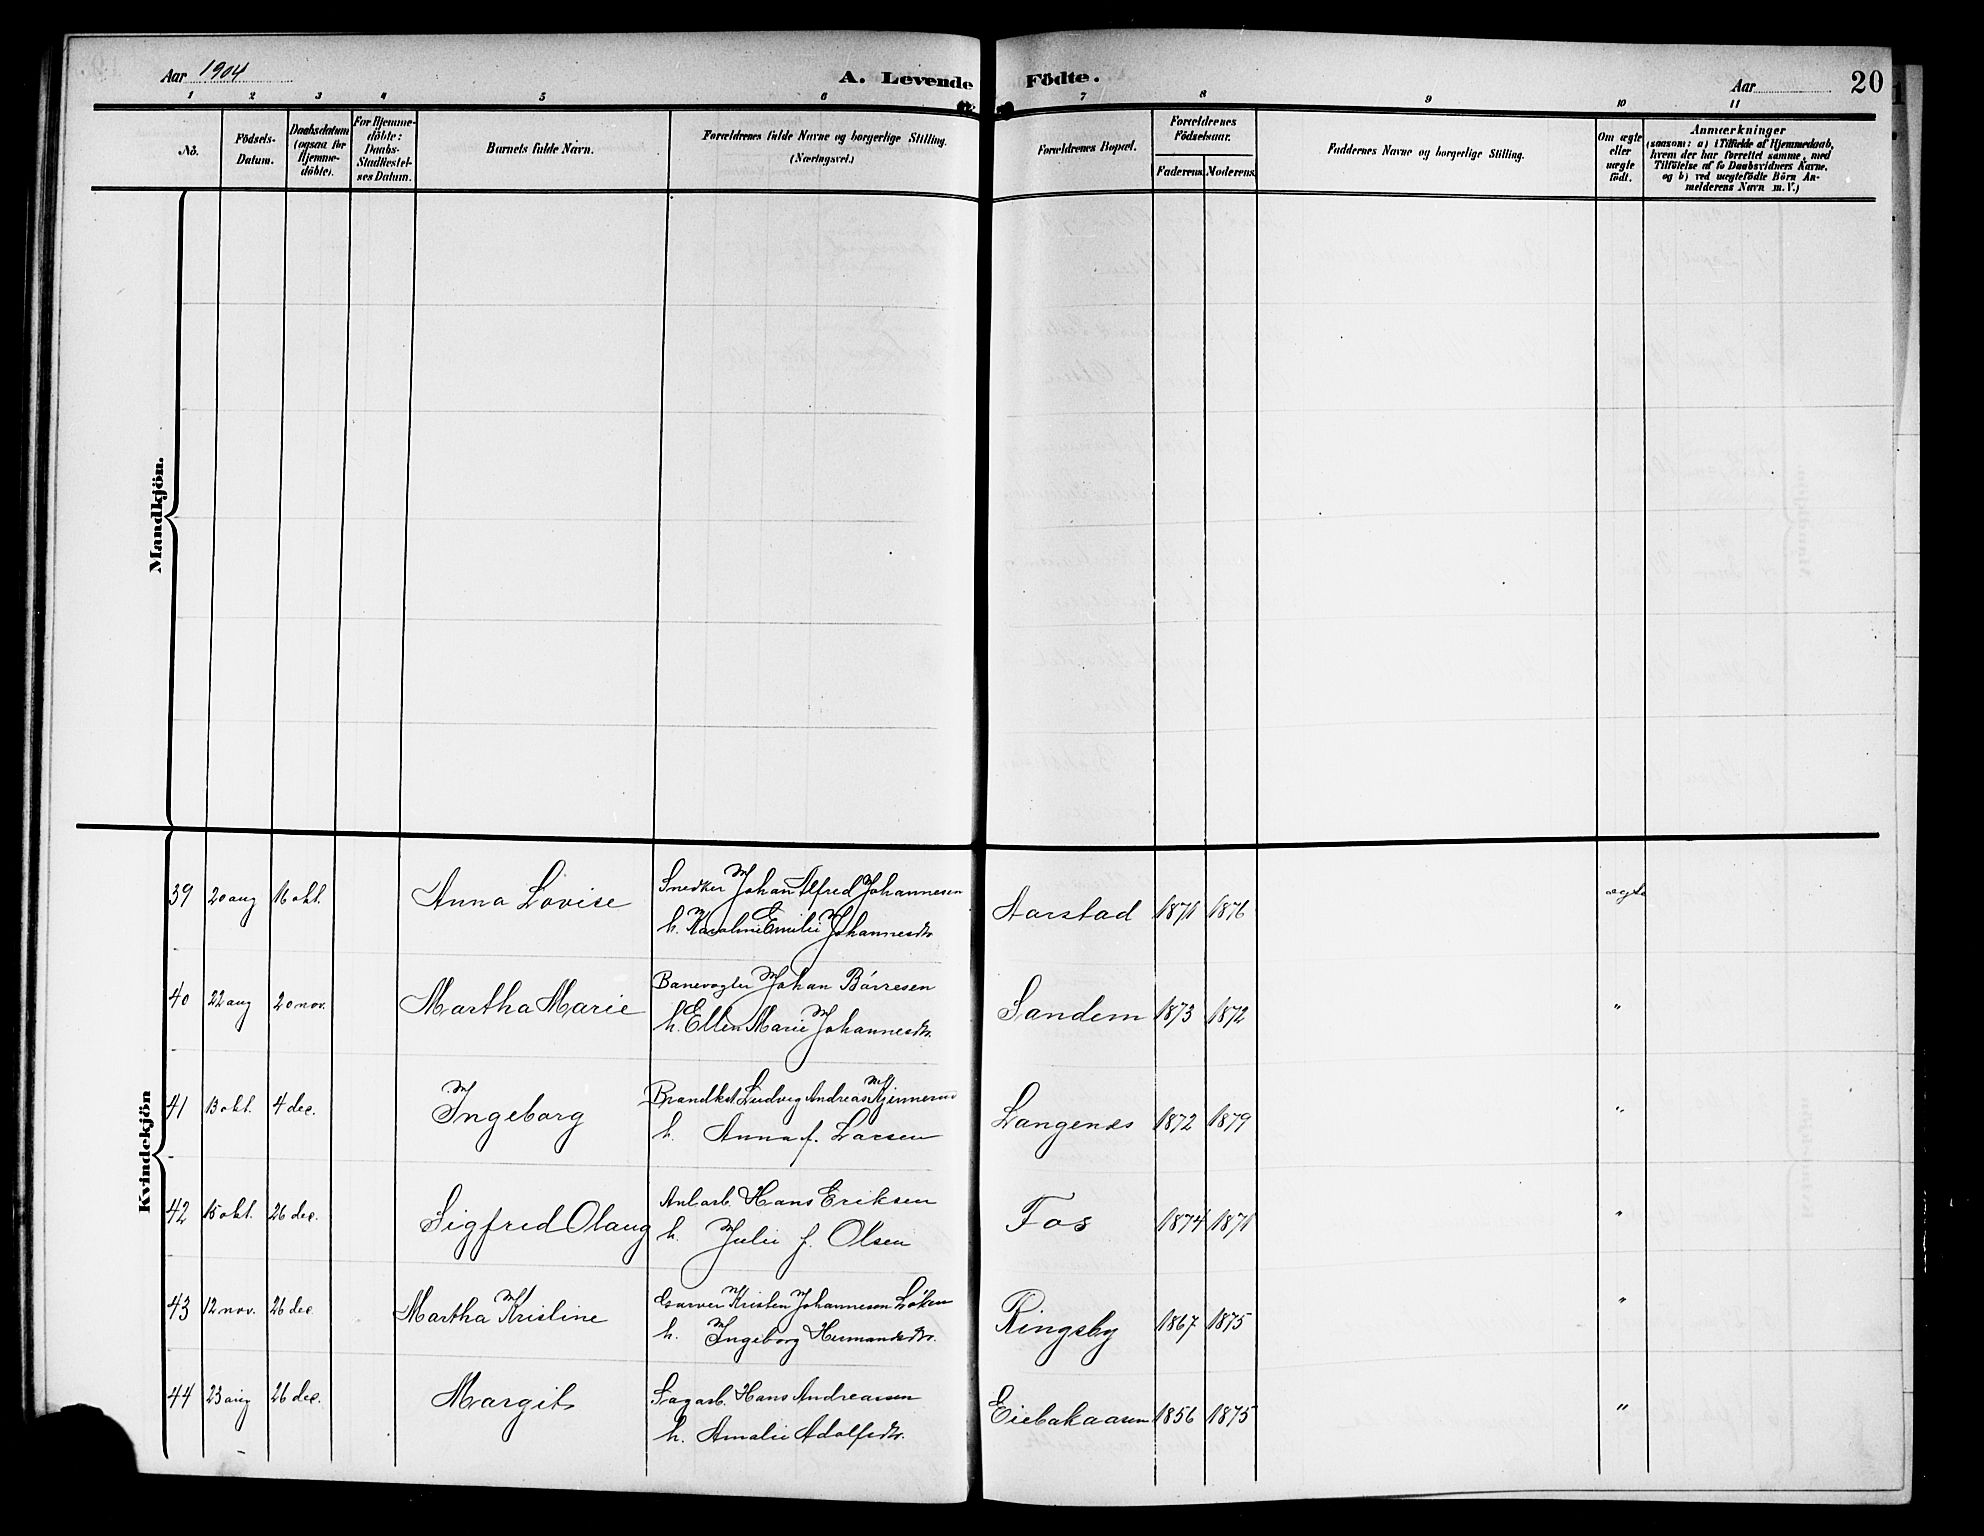 Aar 1904 A. Levende Födte. Aar 20
1 2 3 4 5 6 7 8 9 10 11
No. Födsels-Datum. Daabsdatum (ogsaa for Hjemme-döbte). For Hjemme-döbte: Daabs-Stadfæstel-ses Datum. Barnets fulde Navn. Forældrenes fulde Navne og borgerlige Stilling. (Næringsvei.) Forældrenes Bopæl. Forældrenes Födselsaar. Faderens. Moderens. Faddernes Navne og borgerlige Stilling. Om ægte eller uægte födt. Anmærkninger (saasom: a) i Tilfælde af Hjemmedaab, hvem der har forrettet samme, med Tilföielse af to Daabsvidners Navne, og b) ved uægtefödte Börn An-melderens Navn m. V.)
Mandkjön.
Kvindekjön
39 20 aug 16 okt. Anna Lovise Snedker Johan Alfred Johannesen Aarstad 1871 1876 ægte
h. Karoline Emilie Johannesdtr.
40 22 aug 20 nov. Martha Marie Banevogter Johan Börresen Sandem 1873 1872 "
h. Ellen Marie Johannesdtr.
41 13 okt. 4 dec. Ingeborg Brandkst. Ludvig Andreas Langenes 1872 1879 "
h. Anna f. Larsen
42 15 okt. 26 dec. Sigfred Olaug Anl.arb. Hans Eriksen Fos 1874 1871 "
h. Julie f. Olsen
43 12 nov. 26 dec Martha Kristine Garver Kristen Johannesen Löken Ringsby 1867 1875 "
h. Ingeborg Hermandsdtr.
44 23 aug 26 dec. Margit Sagarb. Hans Andreasen Eiebakaasen 1856 1875 "
h. Amalie Adolfsdtr.